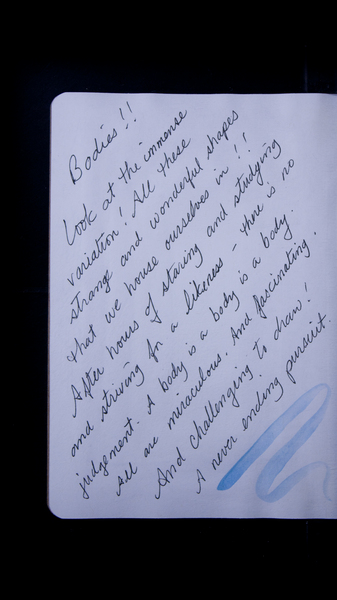 Bodies!!
Look at the immense
variation! All these
strange and wonderful shapes
that we house ourselves in!!
After hours of staring and studying
and striving for a likeness - there is no
judgement. A body is a body is a body.
All are miraculous. And fascinating.
And challenging to draw!
A never ending pursuit.